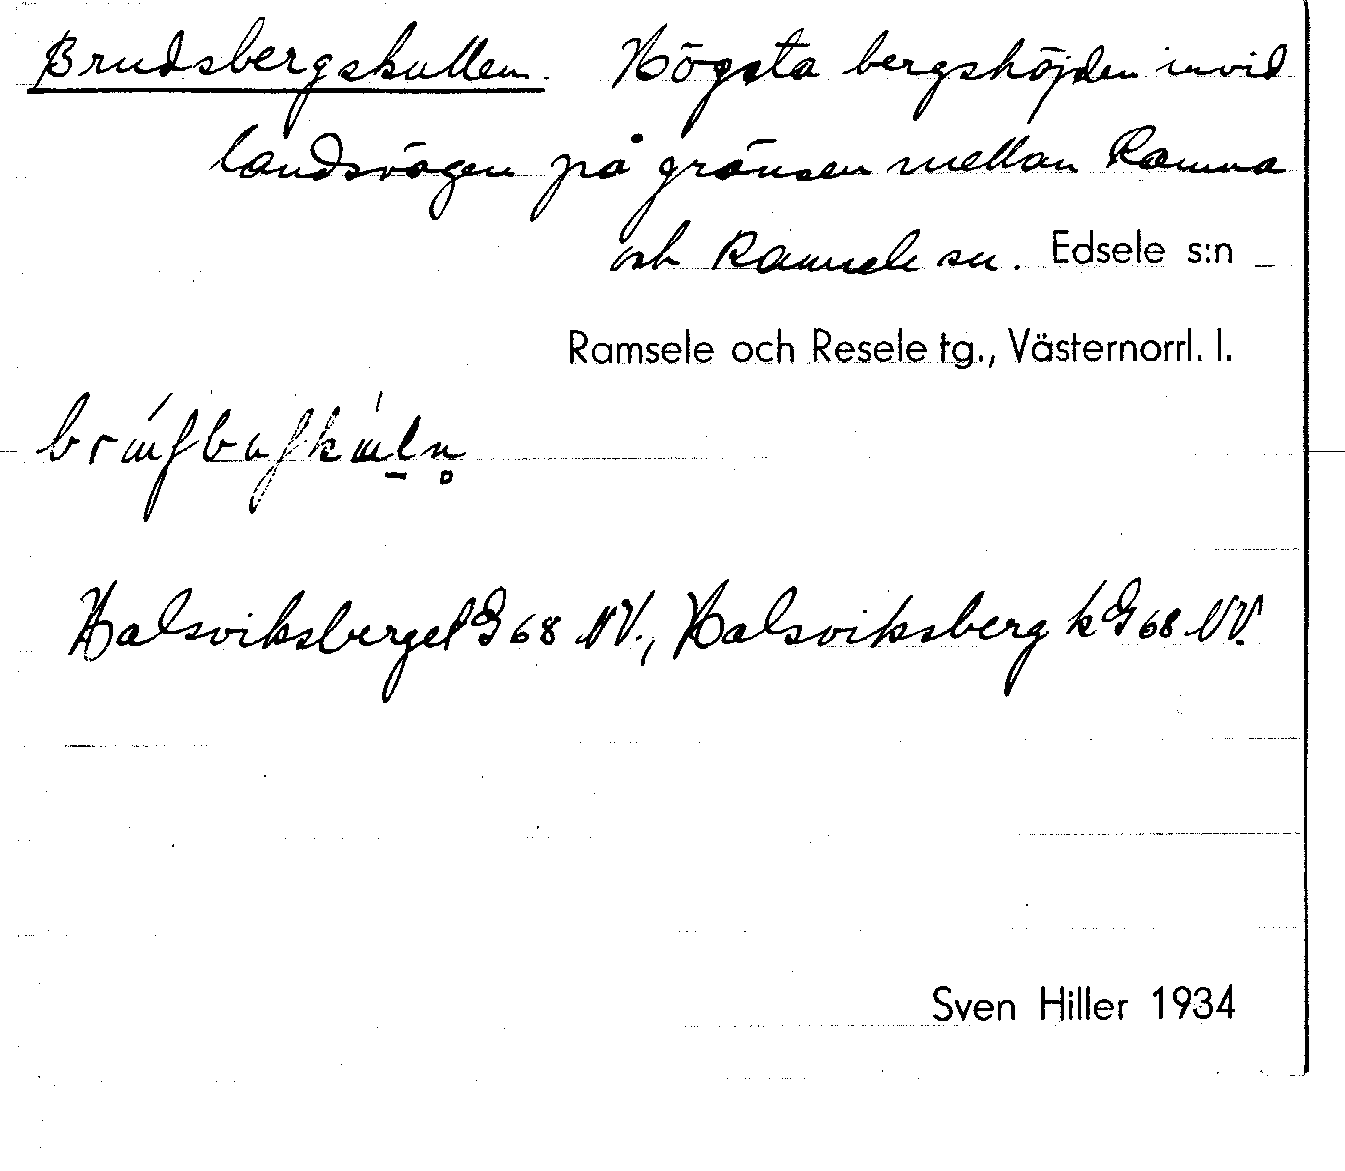 Brudsbergskullen. Högsta bergshöjden invid
landsvägen på gränsen mellan Ramna
och Ramsele sn. Edsele s:n
Ramsele och Resele tg., Västernorrl. l.
Halsviksberget G 68 NV., Halsviksberg k G 68 NV.
Sven Hiller 1934